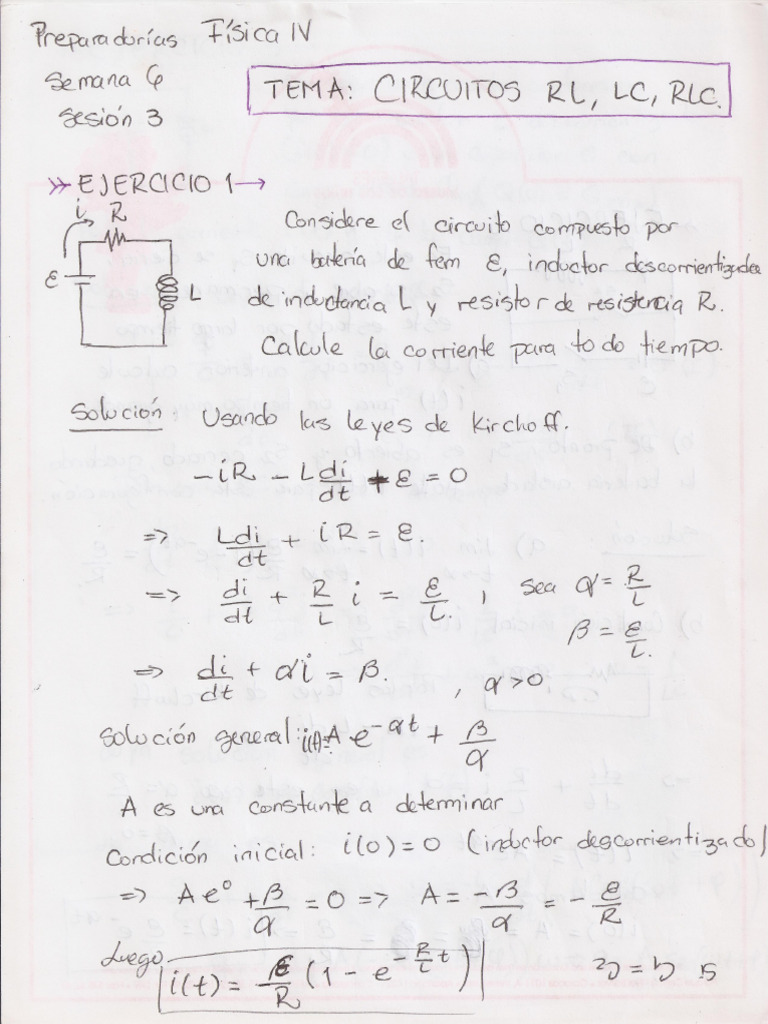 Preparadurías Física IV
Semana 6
Sesión 3
TEMA: CIRCUITOS RL, LC, RLC.
EJERCICIO 1→
i R
ε L
Considere el circuito compuesto por
una batería de fem ε, inductor descorrientizado
de inductancia L y resistor de resistencia R.
Calcule la corriente para todo tiempo.
Solución: Usando las leyes de Kirchoff.
-iR - L di/dt + ε = 0
=> L di/dt + iR = ε.
=> di/dt + R/L i = ε/L, sea α = R/L
β = ε/L.
=> di/dt + αi = β. , α>0
Solución general: i(t)= A e^{-αt} + β/α
A es una constante a determinar
Condición inicial: i(0) = 0 (inductor descorrientizado)
=> A e^0 + β/α = 0 => A = -β/α = -ε/R
Luego
i(t) = ε/R (1 - e^{-R/L t})